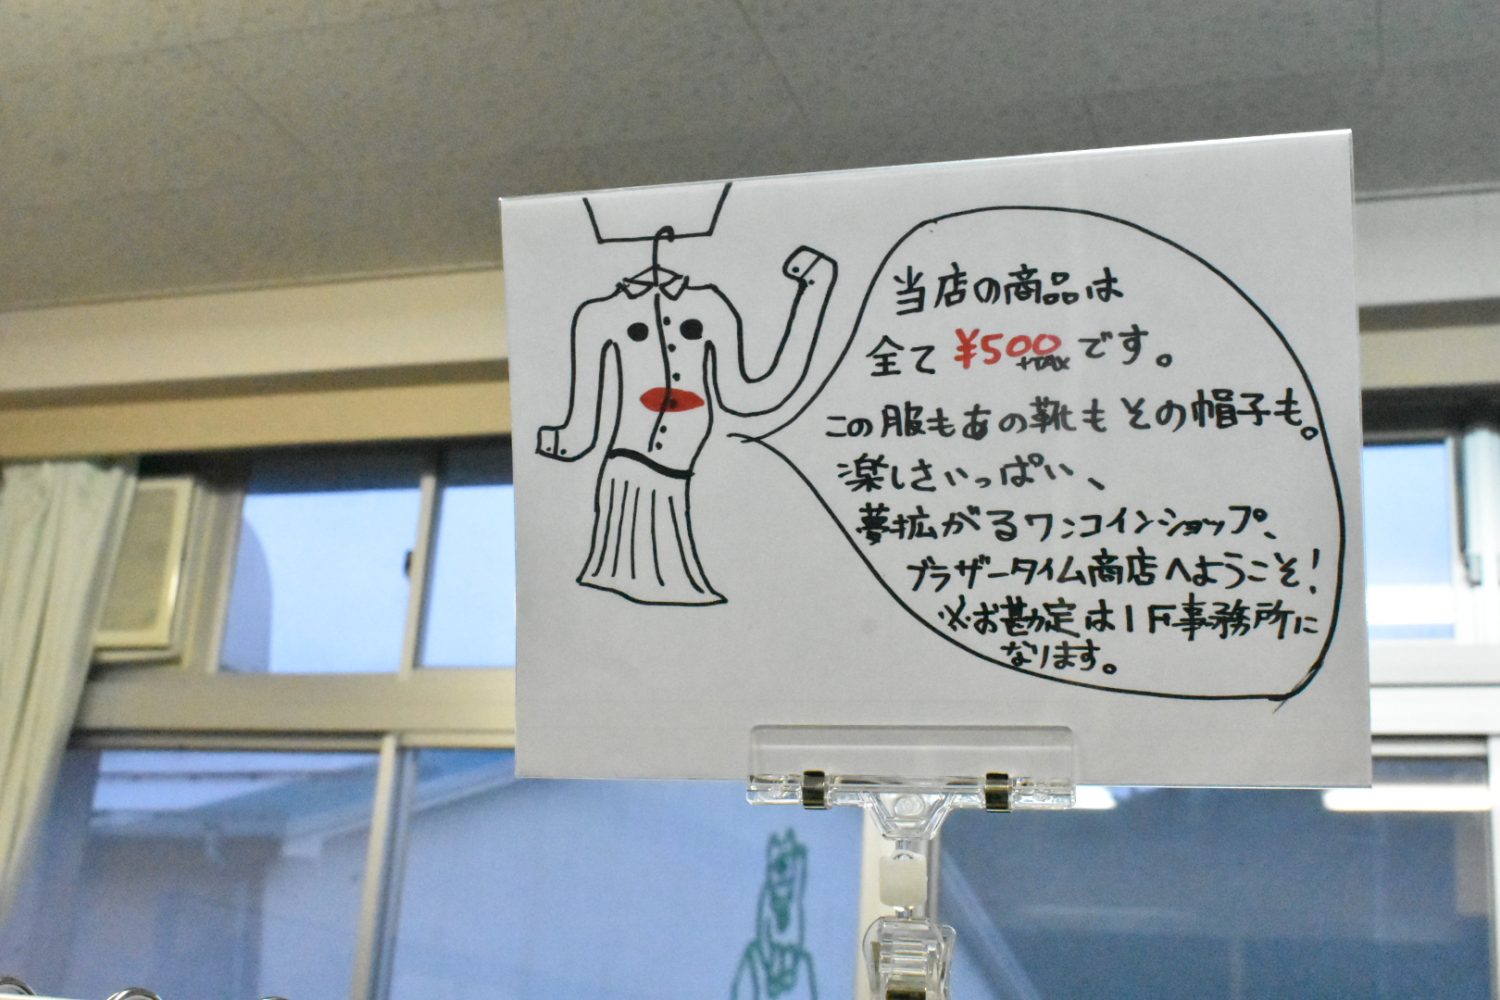 当店の商品は
全て ¥500 +TAX です。
この服もあの靴もその帽子も。
楽しさいっぱい、
夢拡がるワンコインショップ、
ブラザータイム商店へようこそ!
※お勘定は1F事務所に
なります。